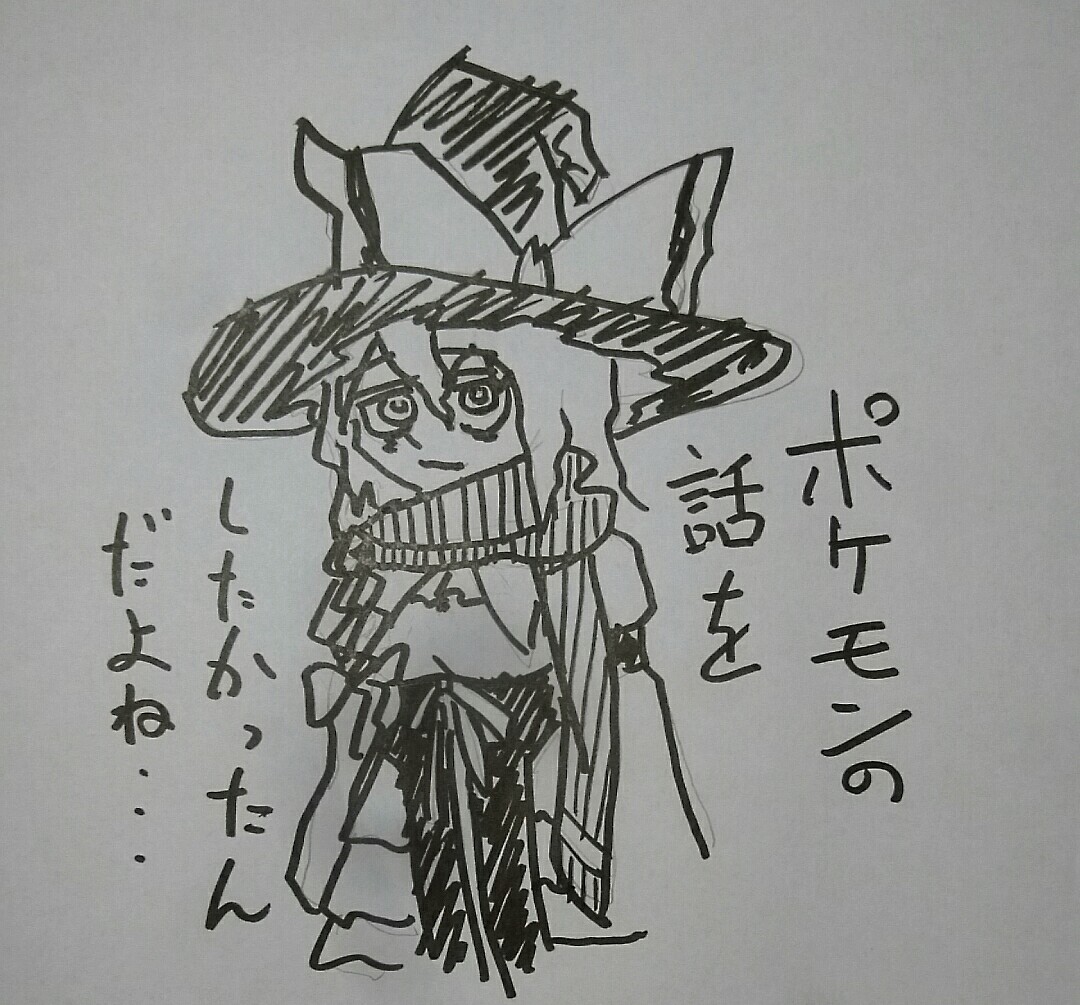 ポケモンの
話を
したかったん
だよね・・・